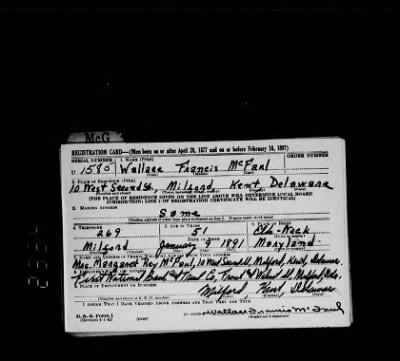 McG
REGISTRATION CARD—(Men born on or after April 28, 1877 and on or before February 16, 1897)
SERIAL NUMBER 1. NAME (Print) ORDER NUMBER
U 1580 Wallace Francis McFaul
(First) (Middle) (Last)
2. PLACE OF RESIDENCE (Print)
10 West Second St., Milford Kent Delaware
(THE PLACE OF RESIDENCE GIVEN ON THE LINE ABOVE WILL DETERMINE LOCAL BOARD
JURISDICTION; LINE 2 OF REGISTRATION CERTIFICATE WILL BE IDENTICAL)
3. MAILING ADDRESS
Same
4. TELEPHONE 5. AGE IN YEARS 6. PLACE OF BIRTH
269 51 Elk-Neck
DATE OF BIRTH
Milford January 9 1891 Maryland
7. NAME AND ADDRESS OF PERSON WHO WILL ALWAYS KNOW YOUR ADDRESS
Mrs. Margaret McFaul, 10 West Second St., Milford, Kent, Delaware
8. EMPLOYER'S NAME AND ADDRESS
First National Bank & Trust Co., Front & Walnut St., Milford, Del.
9. PLACE OF EMPLOYMENT OR BUSINESS
Milford Kent Delaware
I AFFIRM THAT I HAVE VERIFIED ABOVE ANSWERS AND THAT THEY ARE TRUE.
D. S. S. Form 1
(Revised 4-1-42) (over)
Wallace Francis McFaul